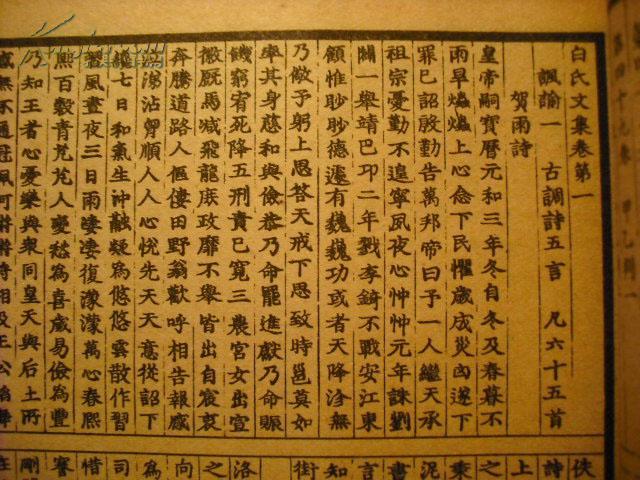 白氏文集卷第一
諷諭一 古調詩五言 凡六十五首
賀雨詩
皇帝嗣寶曆元和三年冬自冬及春暮不
雨旱爞爞上心念下民懼歲成災凶遂下
罪己詔殷勤告萬邦帝曰予一人繼天承
祖宗憂勤不遑寧夙夜心忡忡元年誅劉
闢一舉靖巴邛二年戮李錡不戰安江東
顧惟眇眇德遽有巍巍功或者天降沴無
乃儆予躬上思答天戒下思致時邕莫如
率其身慈和與儉恭乃命罷進獻乃命賑
饑窮宥死降五刑責己寬三農宮女出宣
徽厩馬減飛龍庶政靡不舉皆出自宸衷
奔騰道路人傴僂田野翁歡呼相告報感
泣涕沾胷順人人心悅先天天意從詔下
纔七日和氣生沖融凝為悠悠雲散作習
習風晝夜三日雨淒淒復濛濛萬心春熙
熙百穀青芃芃人變愁為喜歲易儉為豐
乃知王者心憂樂與衆同皇天與后土所
感無不通冠珮何
俠
詩
上
之
乘
泥
書
言
知
街
洛
之
向
為
司
惜
謇
剛
在